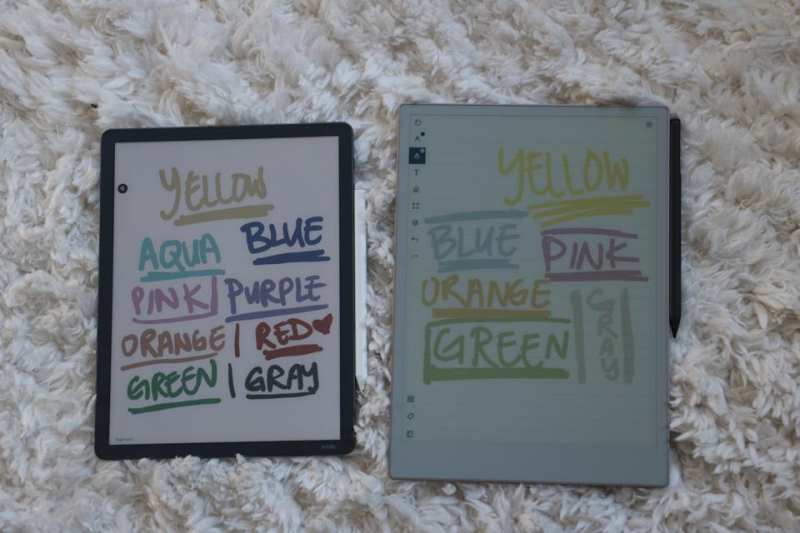 YELLOW
AQUA BLUE
PINK PURPLE
ORANGE RED
GREEN GRAY
kindle
YELLOW
BLUE PINK
ORANGE
GREEN GRAY